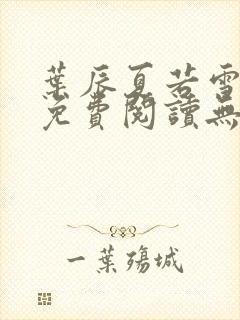 葉辰夏若雪
免費閱讀無
一葉殤城